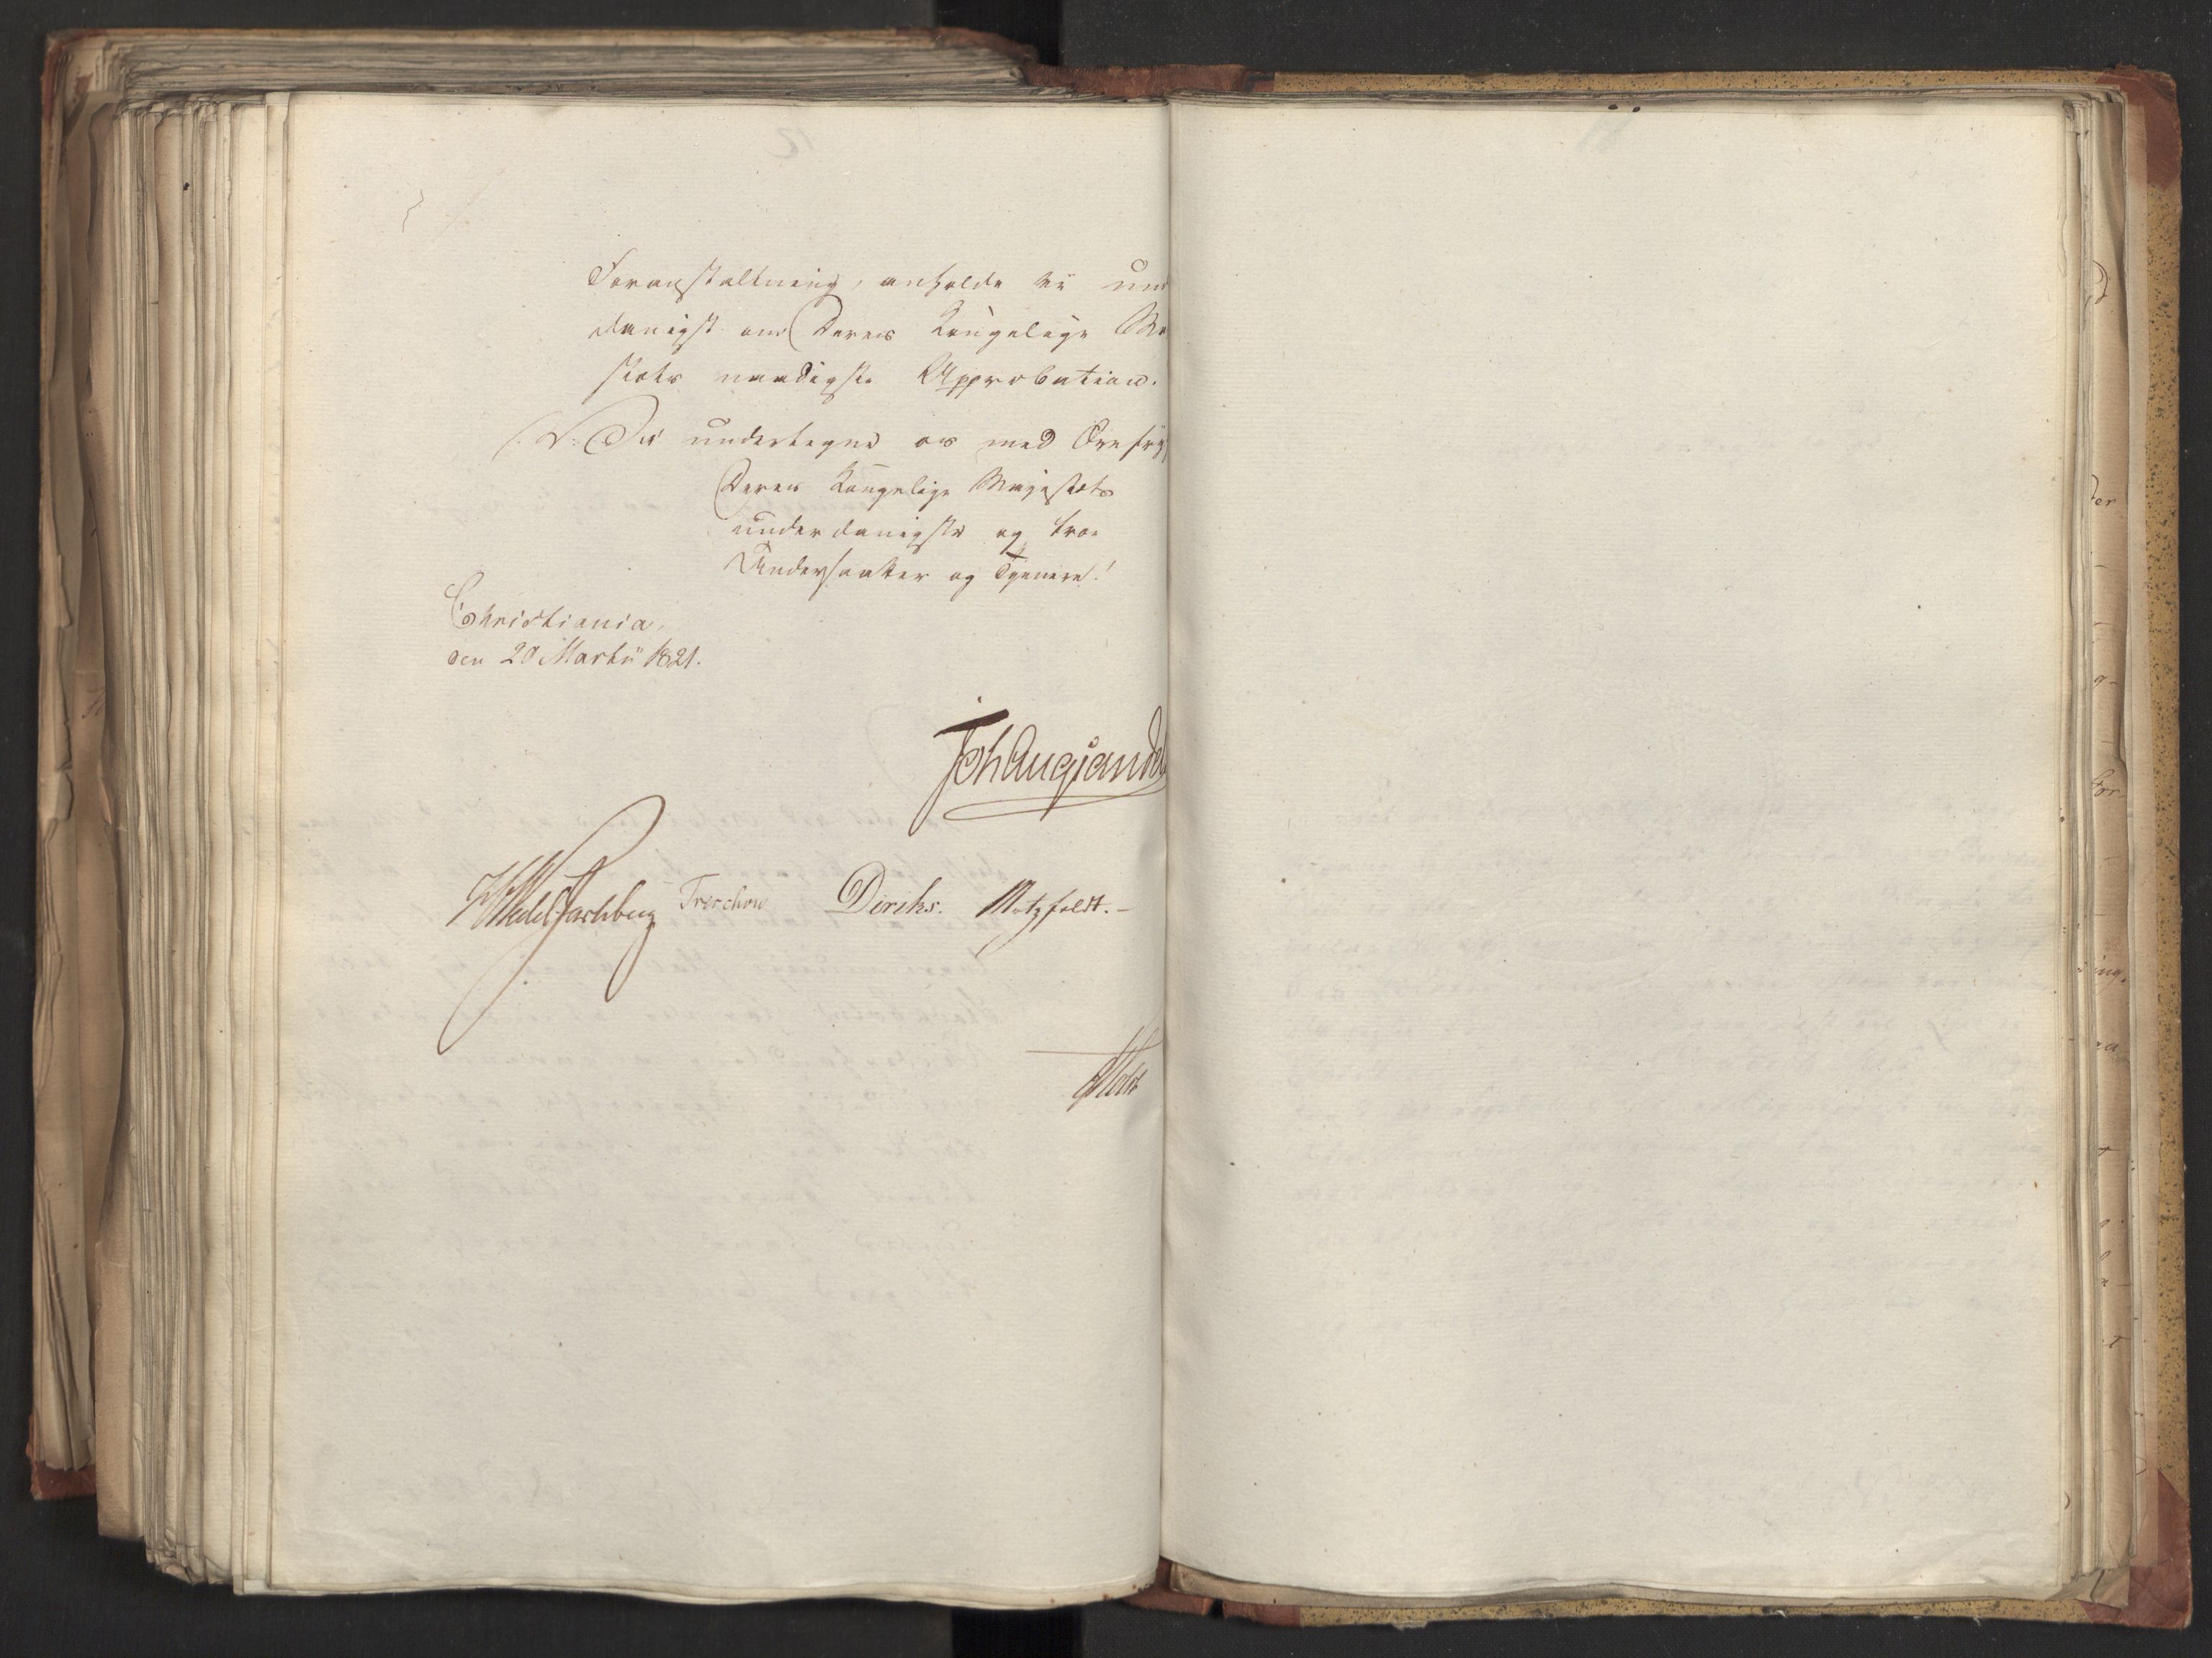 Foranstaltning, anholde vi un
danigst om Deres Kongelige Ma
stæts naadigste Approbation.
Vi undertegne os med Ærefry
Deres Kongelige Majestæts
underdanigste og troe
Undersaatter og Tjenere!
Christiania,
den 20 Martii 1821.
JohAugSandel
HWedelJarlsberg Treschow Diriks. Motzfeldt.-
Holst